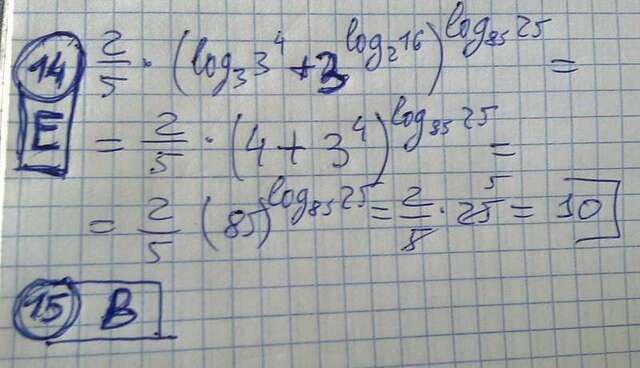 14 2/5 · (log₃3⁴ + 3^(log₂16))^(log₈₅25) =
E = 2/5 · (4 + 3⁴)^(log₈₅25) =
= 2/5 (85)^(log₈₅25) = 2/5 · 25 5 = 10
15 B